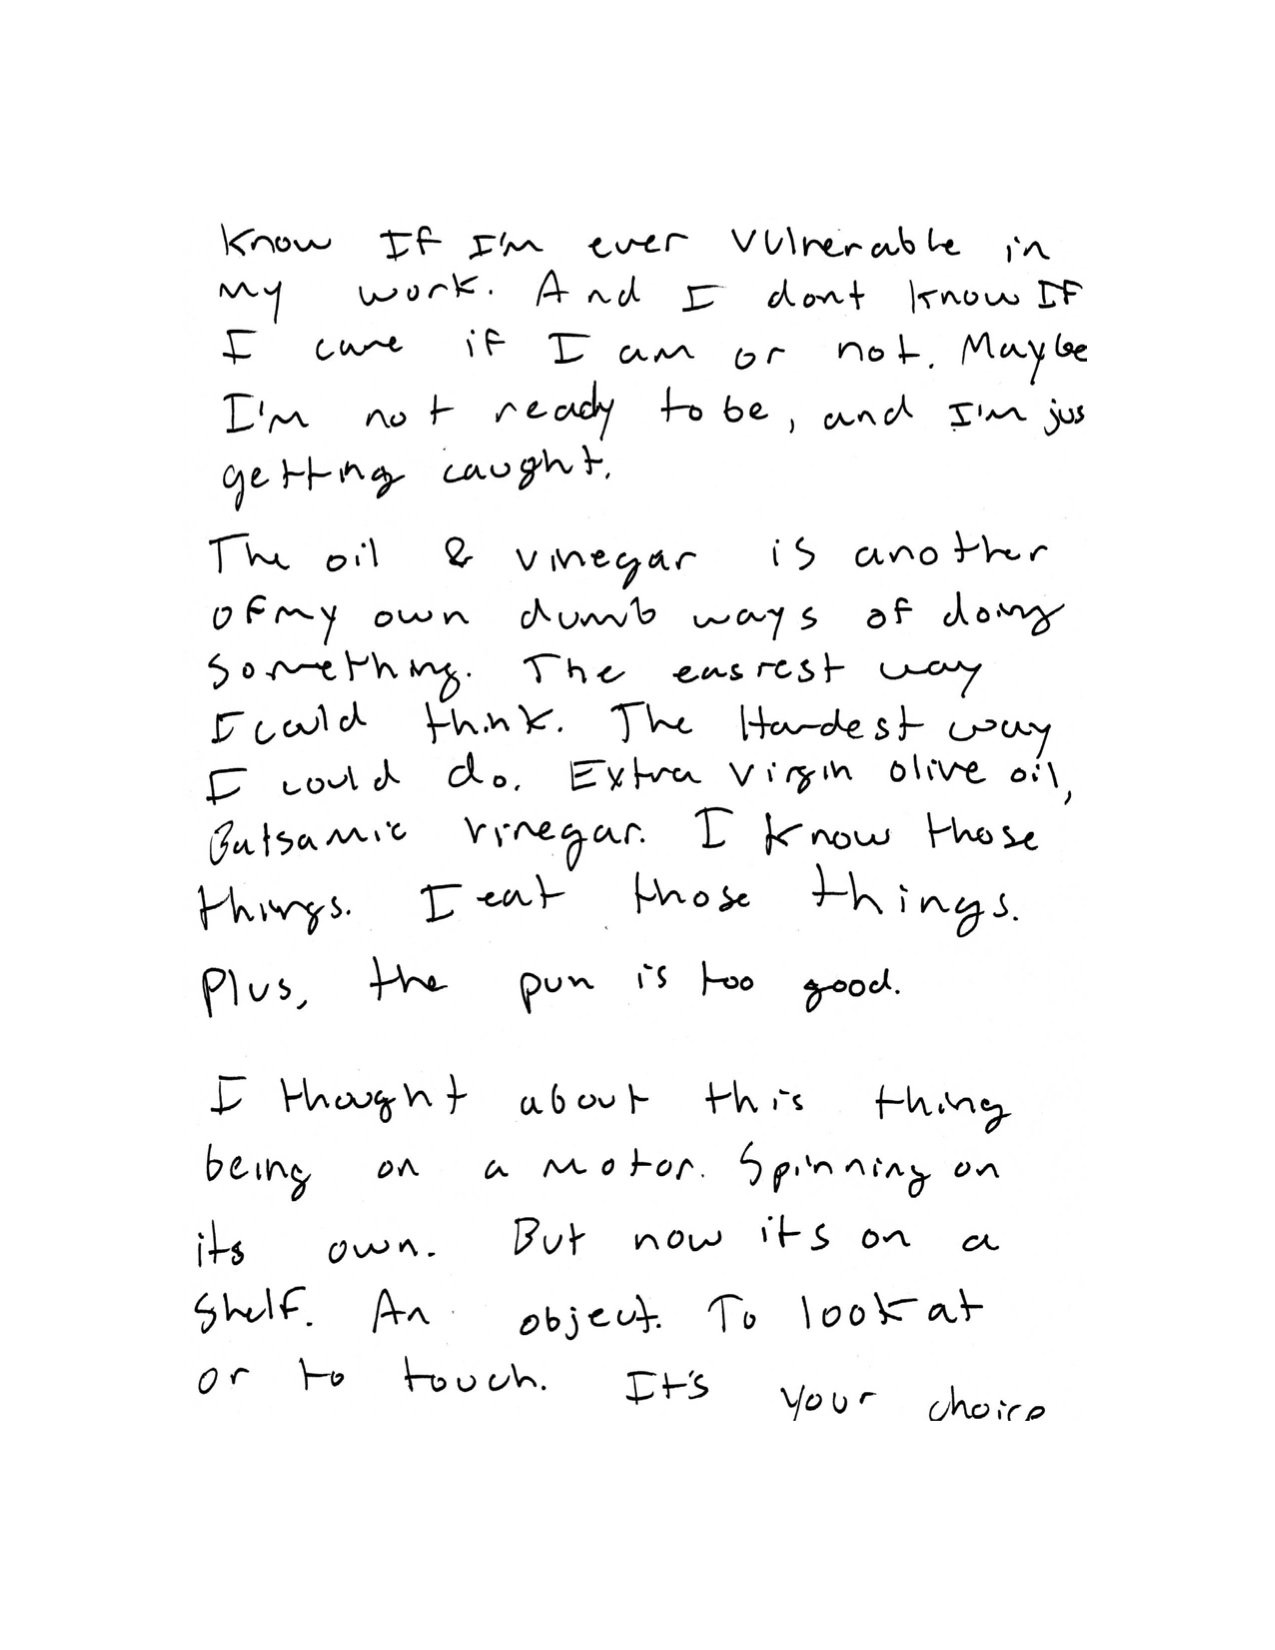 Know If I'm ever vulnerable in
my work. And I dont know If
I care if I am or not. Maybe
I'm not ready to be, and I'm jus
getting caught.
The oil & vinegar is another
of my own dumb ways of doing
something. The easiest way
I could think. The Hardest way
I could do. Extra virgin olive oil,
Balsamic vinegar. I know those
things. I eat those things.
Plus, the pun is too good.
I thought about this thing
being on a motor. Spinning on
its own. But now its on a
shelf. An object. To look at
or to touch. It's your choice